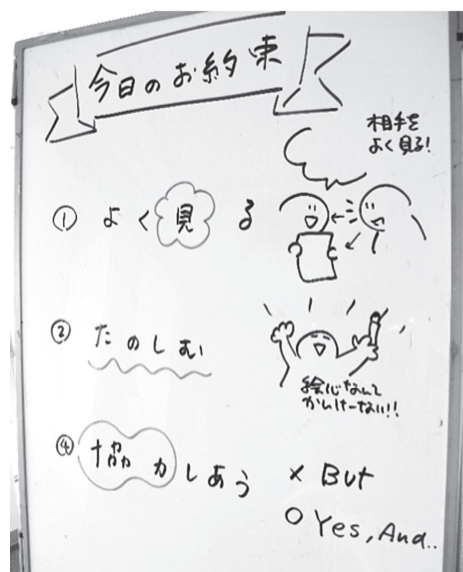 今日のお約束
相手を
よく見る!
① よく見る
② たのしむ
絵心なんて
かんけーない!!
④ 協力しあう
× But
○ Yes, And..